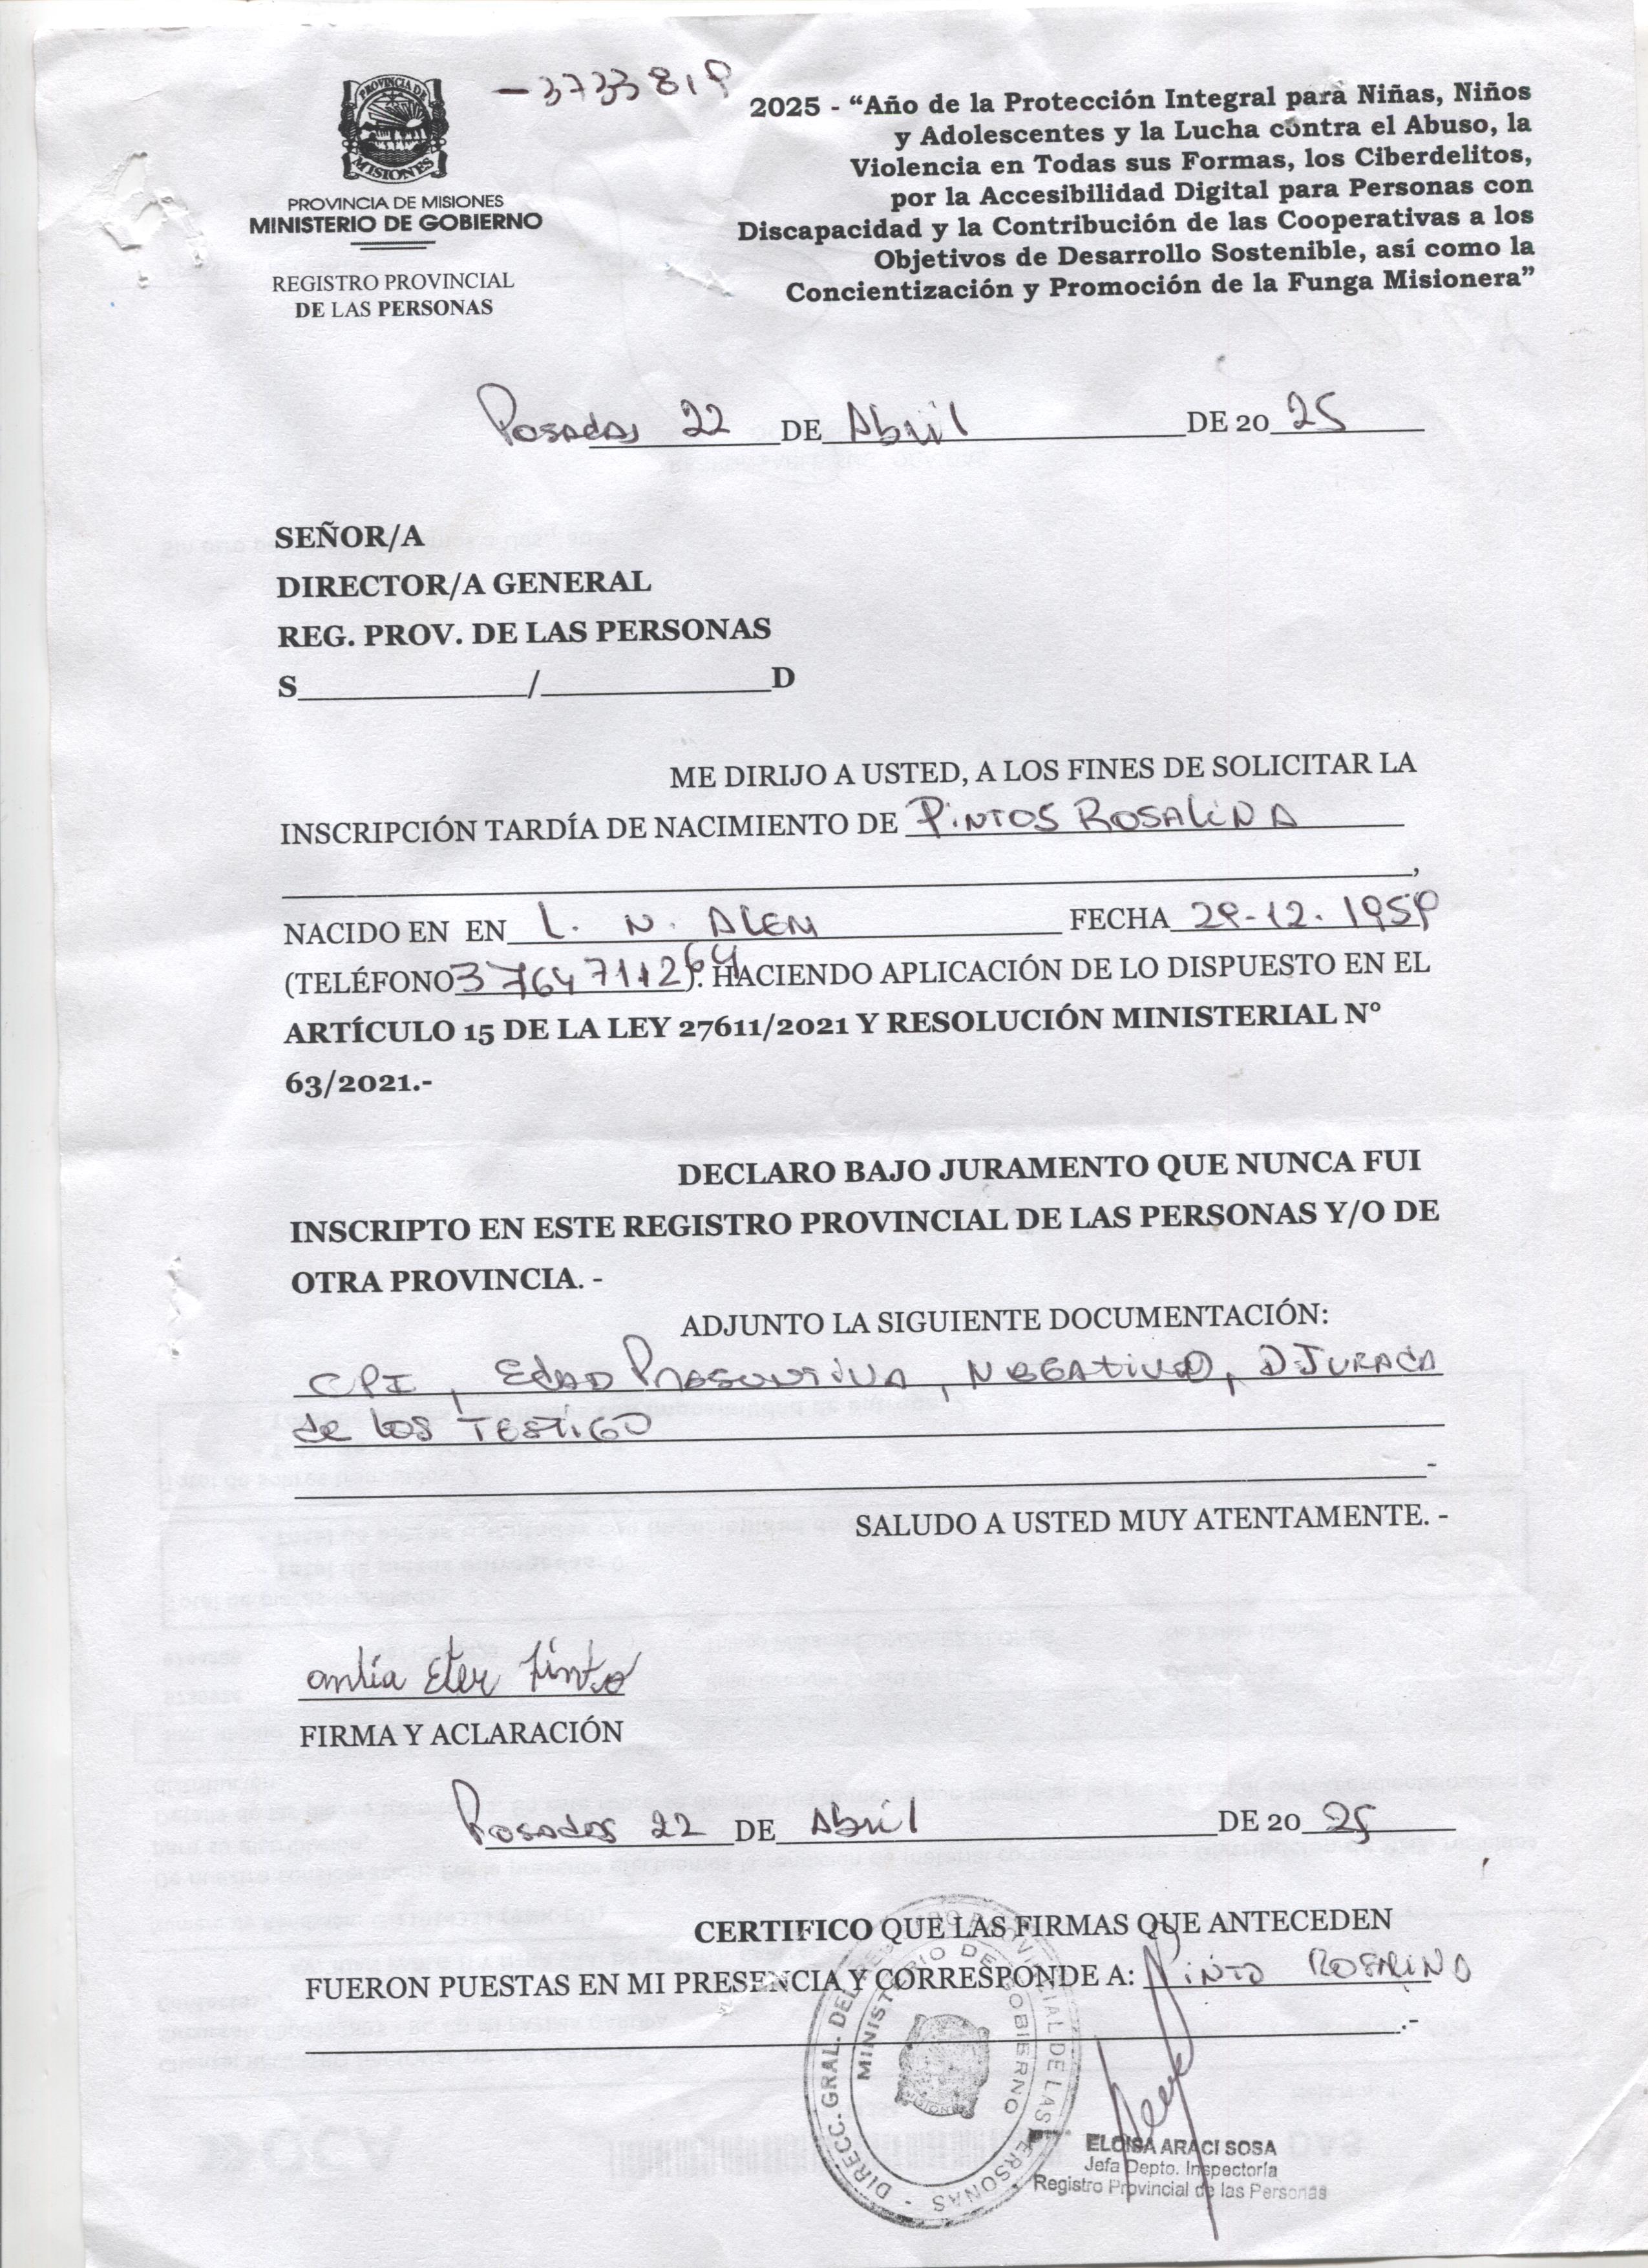 PROVINCIA DE
MISIONES
PROVINCIA DE MISIONES
MINISTERIO DE GOBIERNO
REGISTRO PROVINCIAL
DE LAS PERSONAS
-3733819
2025 - “Año de la Protección Integral para Niñas, Niños
y Adolescentes y la Lucha contra el Abuso, la
Violencia en Todas sus Formas, los Ciberdelitos,
por la Accesibilidad Digital para Personas con
Discapacidad y la Contribución de las Cooperativas a los
Objetivos de Desarrollo Sostenible, así como la
Concientización y Promoción de la Funga Misionera”
Posadas 22 DE Abril DE 20 25
SEÑOR/A
DIRECTOR/A GENERAL
REG. PROV. DE LAS PERSONAS
S____________/____________D
ME DIRIJO A USTED, A LOS FINES DE SOLICITAR LA
INSCRIPCIÓN TARDÍA DE NACIMIENTO DE PINTOS ROSALINA
,
NACIDO EN EN L. N. ALEM FECHA 29-12-1959
(TELÉFONO 3764711264). HACIENDO APLICACIÓN DE LO DISPUESTO EN EL
ARTÍCULO 15 DE LA LEY 27611/2021 Y RESOLUCIÓN MINISTERIAL N°
63/2021.-
DECLARO BAJO JURAMENTO QUE NUNCA FUI
INSCRIPTO EN ESTE REGISTRO PROVINCIAL DE LAS PERSONAS Y/O DE
OTRA PROVINCIA. -
ADJUNTO LA SIGUIENTE DOCUMENTACIÓN:
CPI, EDAD PRESUNTIVA, NEGATIVO, D.JURADA
de los TESTIGO
-
SALUDO A USTED MUY ATENTAMENTE. -
Eter Pinto
FIRMA Y ACLARACIÓN
Posadas 22 DE Abril DE 20 25
CERTIFICO QUE LAS FIRMAS QUE ANTECEDEN
FUERON PUESTAS EN MI PRESENCIA Y CORRESPONDE A: PINTO ROSALINO
.-
DIRECC. GRAL. DEL REGISTRO PROVINCIAL DE LAS PERSONAS -
MINISTERIO DE GOBIERNO
MISIONES
ELOISA ARACI SOSA
Jefa Depto. Inspectoría
Registro Provincial de las Personas